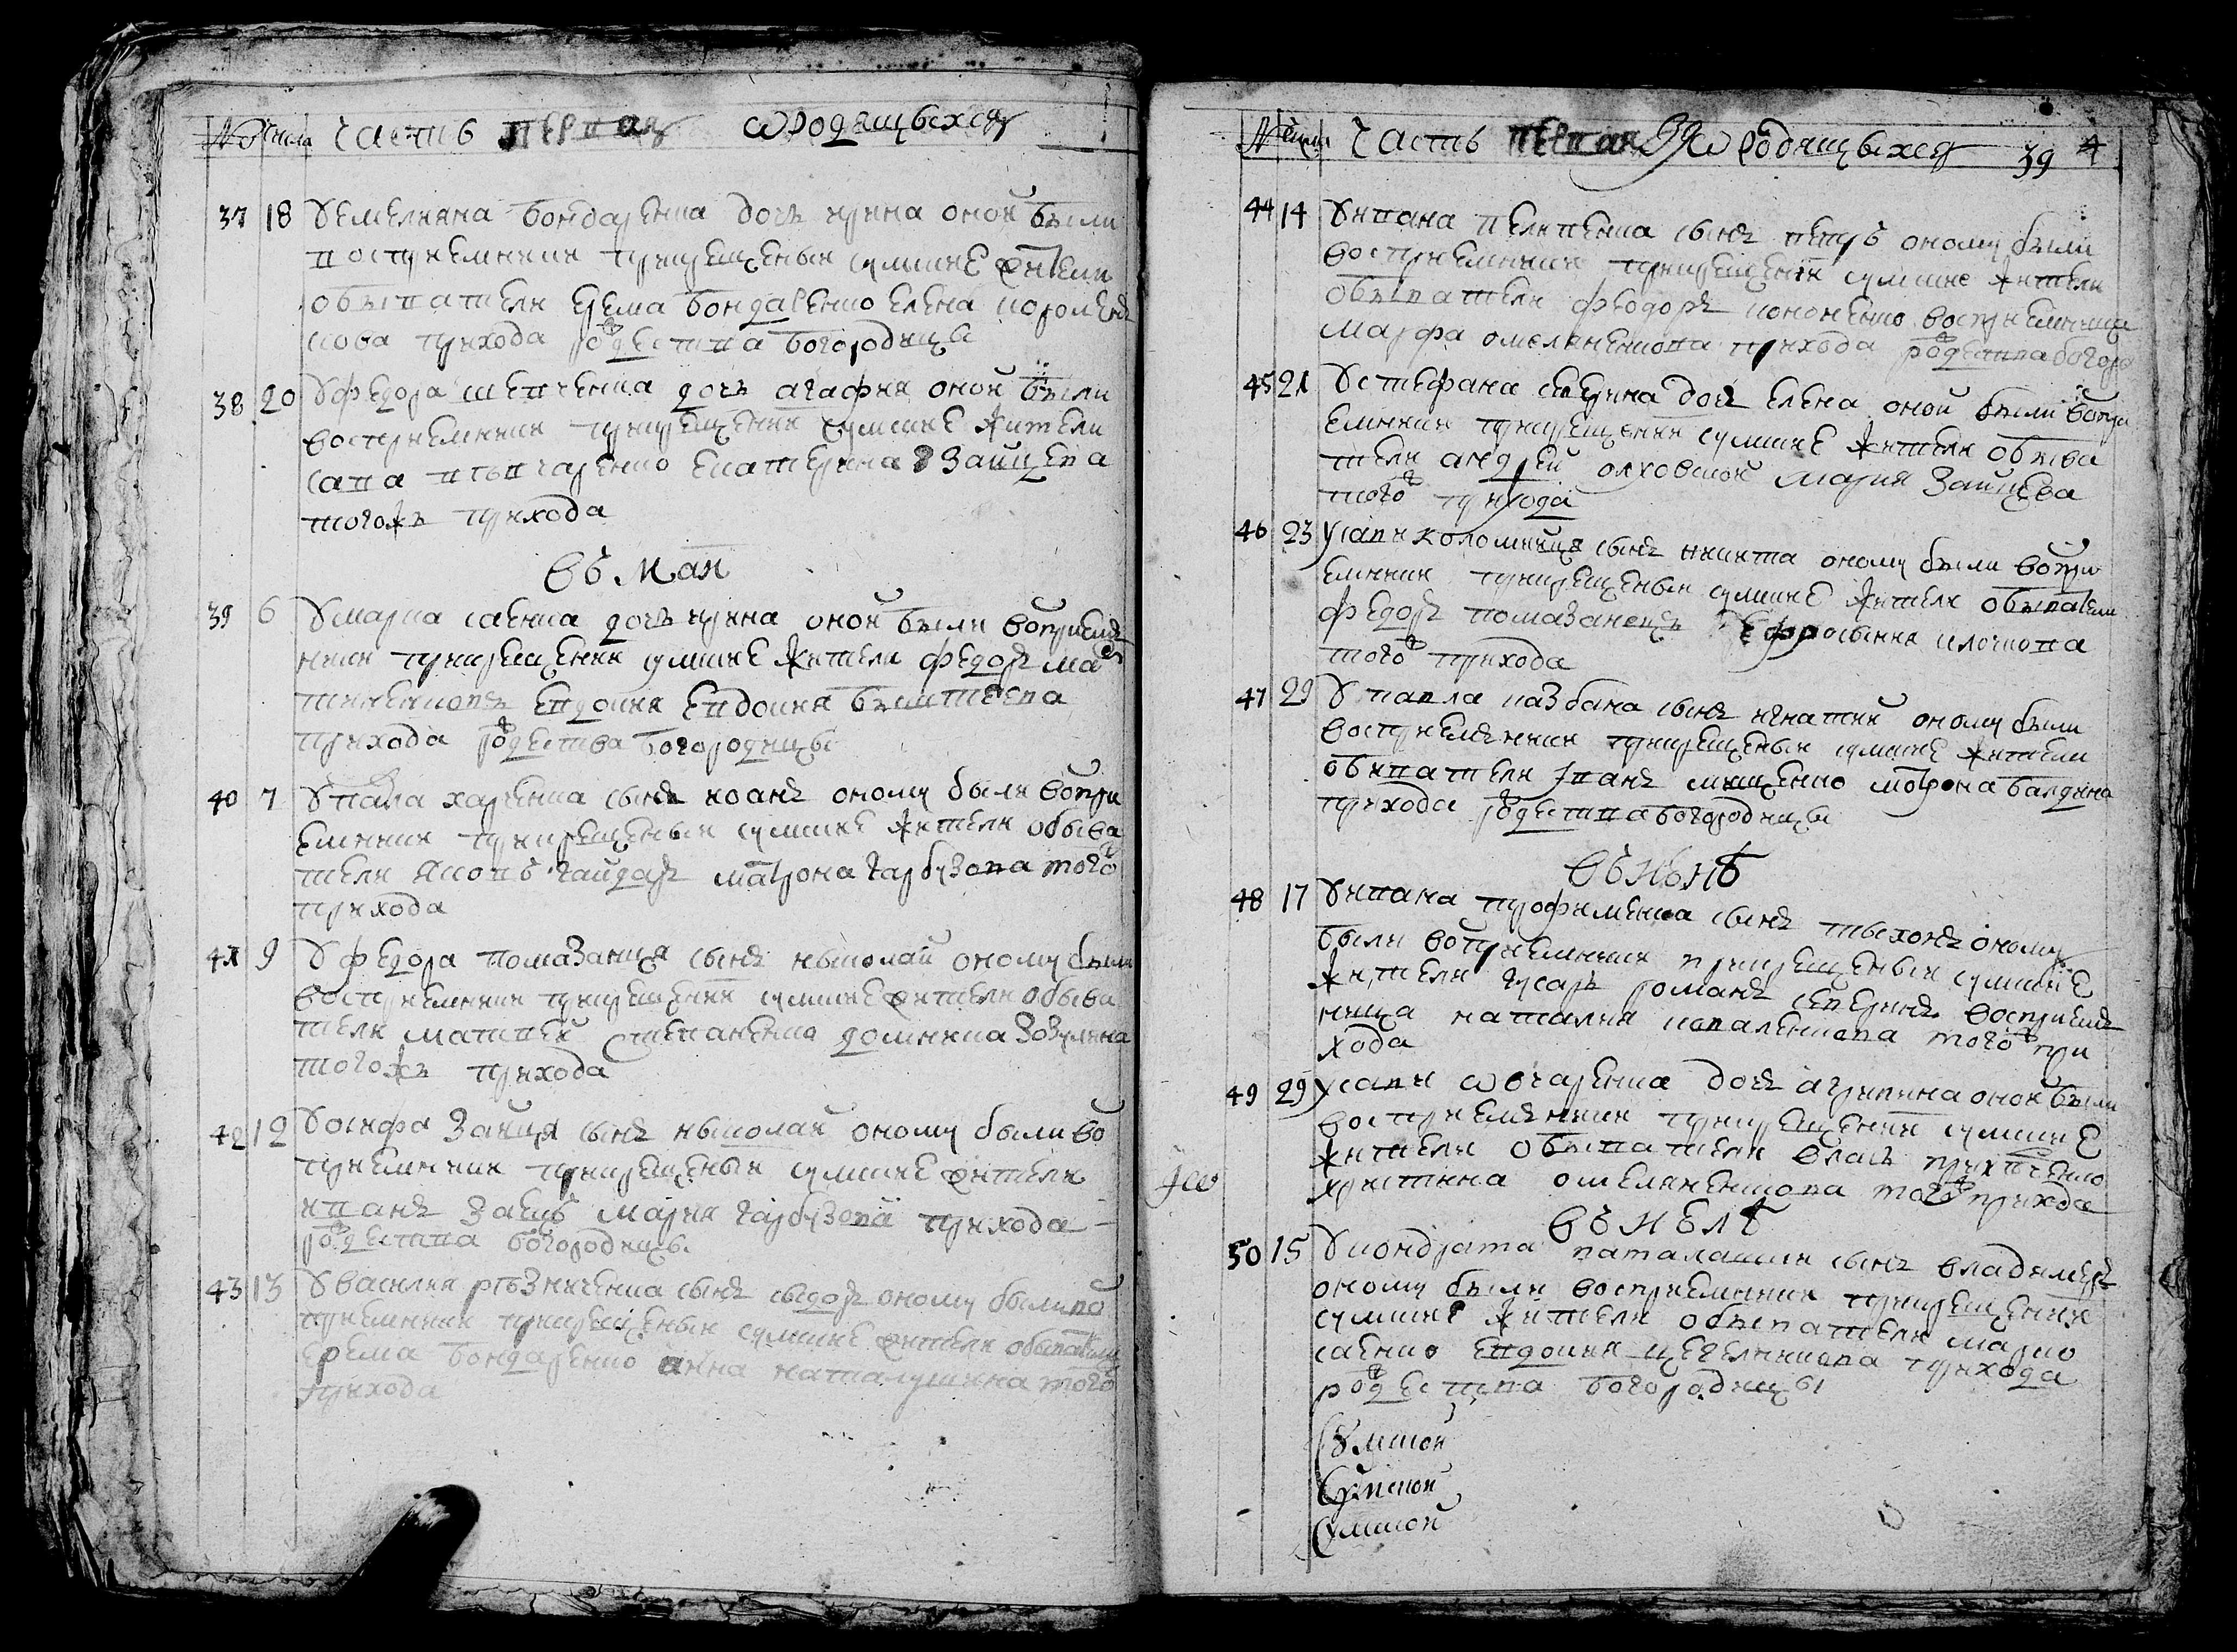 № числа Часть первая ѡ родящыхся
37 18 У емелияна бондаренка дочь ирина оной были
восприемники трикрещеныи сумские жители
обыватели Ерема бондаренко Елена короленк
кова прихода рождества богородицы
38 20 У федора шевченка дочь агафия оной были
восприемники трикрещении сумские жители
сава втывчаренко Екатерина Зайцева
тогожъ прихода
Въ маи
39 6 У марка саенка дочь ирина оной были воприем
ники трикрещении сумские жители федоръ ма
Евдокия бышtoвa
прихода рождества богородицы
40 7 У павла харченка сынъ иоанъ оному были вопри
емники трикрещеныи сумские жители обыва
тели Яковъ гайдаръ матрона гарбузова того
прихода
41 9 У федора помазанця сынъ николай оному были
восприемники трикрещении сумские жители обыва
тели матвей степаненко домникиа Зозулина
тогожъ прихода
42 12 У осифа Зайця сынъ николай оному были во
приемники трикрещеныи сумские жители
иванъ Заецъ мария гарбузова прихода
рождества богородицы
43 13 У василия резниченка сынъ сидоръ оному были во
приемники трикрещеныи сумские жители обыватели
Ерема бондаренко анна наталушкина того
прихода
№ числа Часть первая ѡ родящыхся 39 4
44 14 У ивана пелипенка сынъ петръ оному были
восприемники трикрещении сумские жители
обыватели феодоръ кононенко восприемница
марфа омеляненкова прихода рождества богоро
45 21 У стефана северина дочъ Елена оной были вопри
емники трикрещении сумские жители обыва
тели андрей олховской Мария Зайцева
того прихода
46 23 У савы коломийця сынъ никита оному были вопри
емники трикрещеныи сумские жители обыватели
федоръ помазанецъ Ефросыния клочкова
того прихода
47 29 У павла казбана сынъ игнатий оному были
восприемники трикрещеныи сумские жители
обыватели Иванъ мищенко мотрона балдина
прихода рождества богородицы
Въ июнѣ
48 17 У ивана трофименка сынъ тыхонъ оному
были воприемники трикрещеныи сумские
жители гусаръ романъ северинъ восприем
ница наталия коваленкова того при
хода
49 29 У савы ѡвчаренка дочъ агрипина оной были
восприемники трикрещении сумские
жители обыватели власъ прихтченко
христина омеляненкова того прихода
Въ июлѣ
50 15 У кондрата паталашки сынъ владимеръ
оному были восприемники трикрещении
сумские жители обыватели марко
саенко Евдокия щеголникова прихода
рождества богородицы
Сумской
Сумской
Сумской